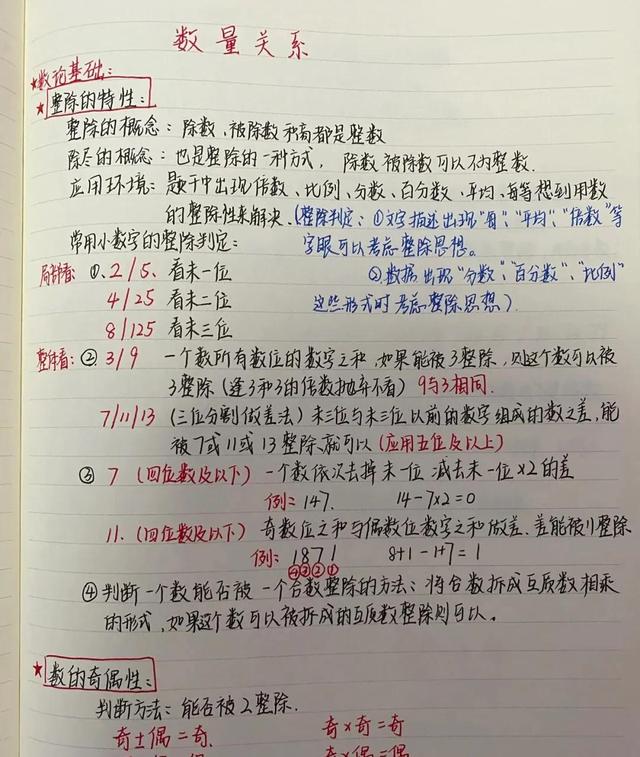 数量关系
★数论基础：
★整除的特性：
整除的概念：除数、被除数和商都是整数
除尽的概念：也是整除的一种方式，除数被除数可以不为整数.
应用环境：题干中出现倍数、比例、分数、百分数、平均、每等想到用数
的整除性来解决.(整除判定：①文字描述出现"每"、"平均"、"倍数"等
字眼可以考虑整除思想。
常用小数字的整除判定：
②数据出现"分数"、"百分数"、"比例"
局部看：①、2/5、看末一位
4/25 看末二位
这些形式时考虑整除思想)
8/125 看末三位
整体看：②3/9 一个数所有数位的数字之和,如果能被3整除,则这个数可以被
3整除(逢3和3的倍数抛弃不看)9与3相同.
7/11/13 (三位分割做差法)末三位与末三位以前的数字组成的数之差,能
被7或11或13整除就可以(应用五位及以上)
③ 7 (四位数及以下) 一个数依次去掉末一位 减去末一位×2的差
例：147. 14-7×2=0
11. (四位数及以下) 奇数位之和与偶数位数字之和做差.差能被11整除
例：1871 8+1-1+7=1
④③②①
④判断一个数能否被一个合数整除的方法：将合数拆成互质数相乘
的形式,如果这个数可以被拆成的互质数整除则可以。
★数的奇偶性：
判断方法：能否被2整除.
奇±偶=奇. 奇×奇=奇
奇×偶=偶